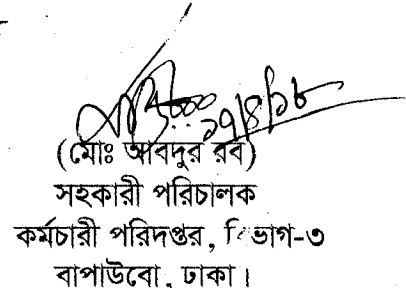 ১৭/৪/১৮
(মোঃ আবদুর রব)
সহকারী পরিচালক
কর্মচারী পরিদপ্তর, বিভাগ-৩
বাপাউবো, ঢাকা।